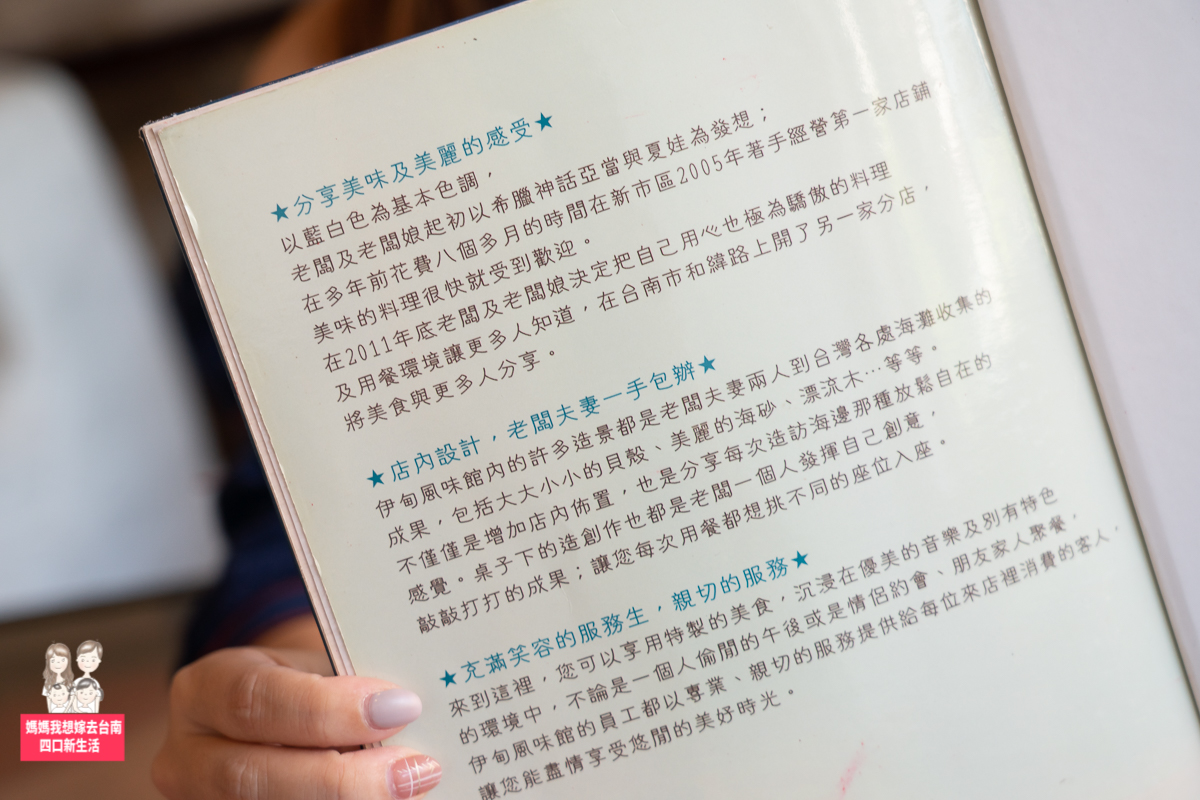 ★分享美味及美麗的感受★
以藍白色為基本色調，
老闆及老闆娘起初以希臘神話亞當與夏娃為發想；
在多年前花費八個多月的時間在新市區2005年著手經營第一家店鋪
美味的料理很快就受到歡迎。
在2011年底老闆及老闆娘決定把自己用心也極為驕傲的料理
及用餐環境讓更多人知道，在台南市和緯路上開了另一家分店，
將美食與更多人分享。
★店內設計，老闆夫妻一手包辦★
伊甸風味館內的許多造景都是老闆夫妻兩人到台灣各處海灘收集的
成果，包括大大小小的貝殼、美麗的海砂、漂流木…等等。
不僅僅是增加店內佈置，也是分享每次造訪海邊那種放鬆自在的
感覺。桌子下的造創作也都是老闆一個人發揮自己創意，
敲敲打打的成果；讓您每次用餐都想挑不同的座位入座。
★充滿笑容的服務生，親切的服務★
來到這裡，您可以享用特製的美食，沉浸在優美的音樂及別有特色
的環境中，不論是一個人偷閒的午後或是情侶約會、朋友家人聚餐，
伊甸風味館的員工都以專業、親切的服務提供給每位來店裡消費的客人，
讓您能盡情享受悠閒的美好時光。
媽媽我想嫁去台南
四口新生活